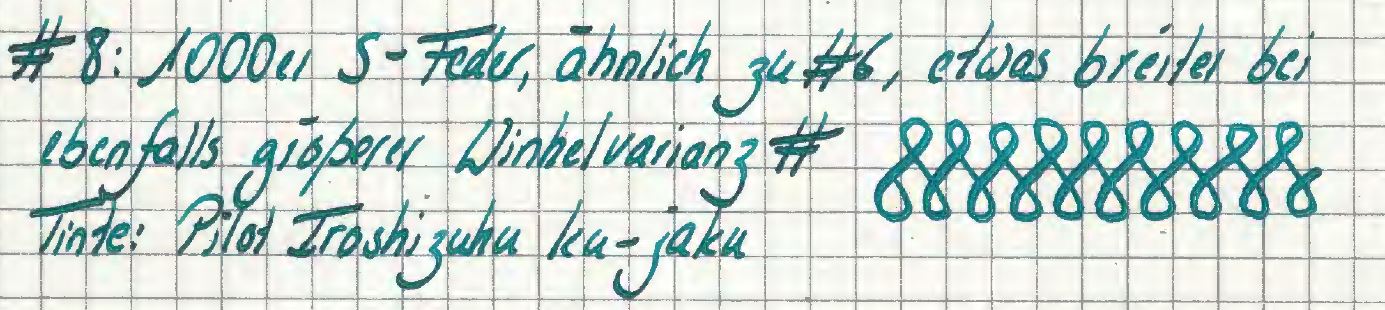 #8: 1000er S-Feder, ähnlich zu #6, etwas breiter bei
ebenfalls größerer Winkelvarianz #
Tinte: Pilot Iroshizuku ku-jaku